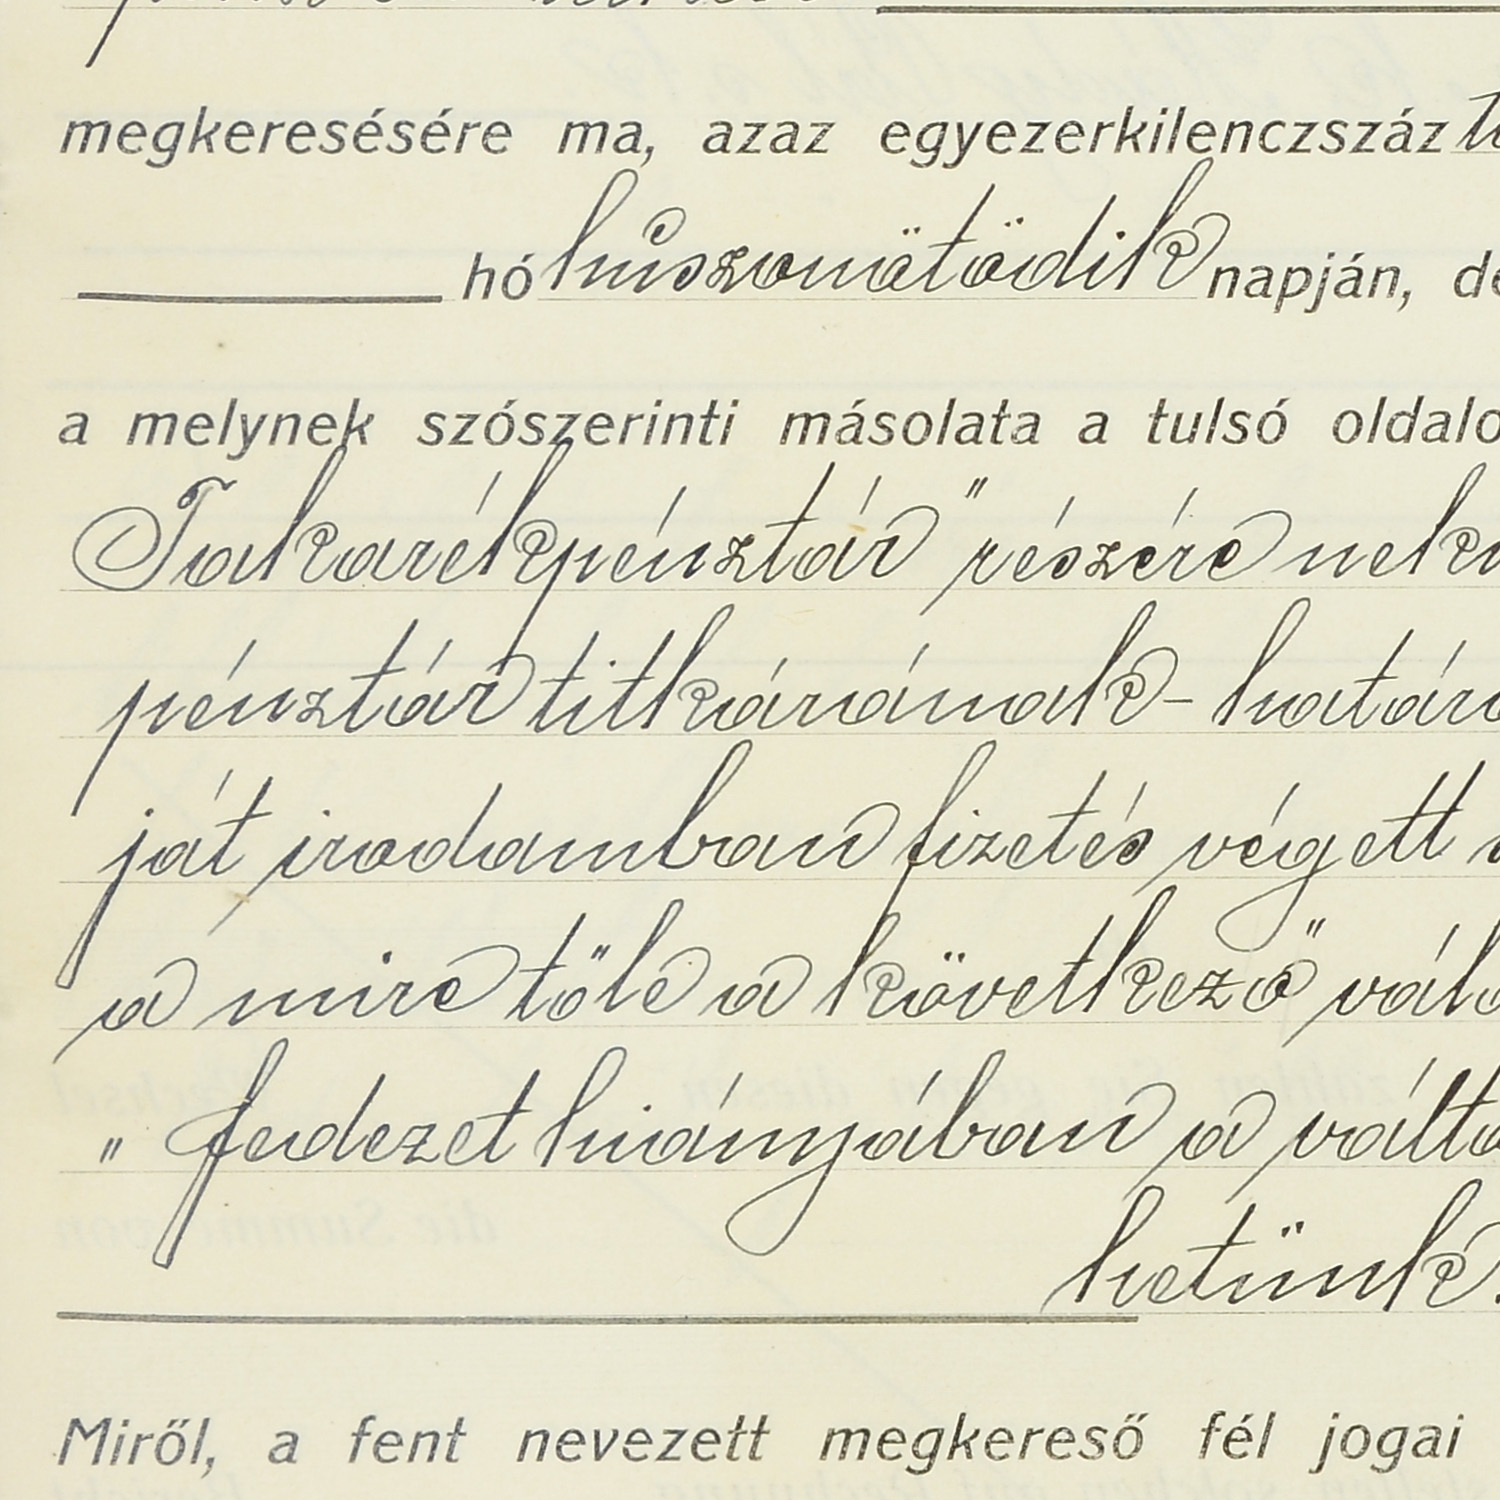 megkeresésére ma, azaz egyezerkilenczszáz
hó huszonötödik napján,
a melynek szószerinti másolata a tulsó
Takarékpénztár" részére
pénztár titkáránák -
ját irodamban fizetés végett
a mire tőle a következő
„ fedezet hiányában a
hetünk.
Miről, a fent nevezett megkereső fél jogai